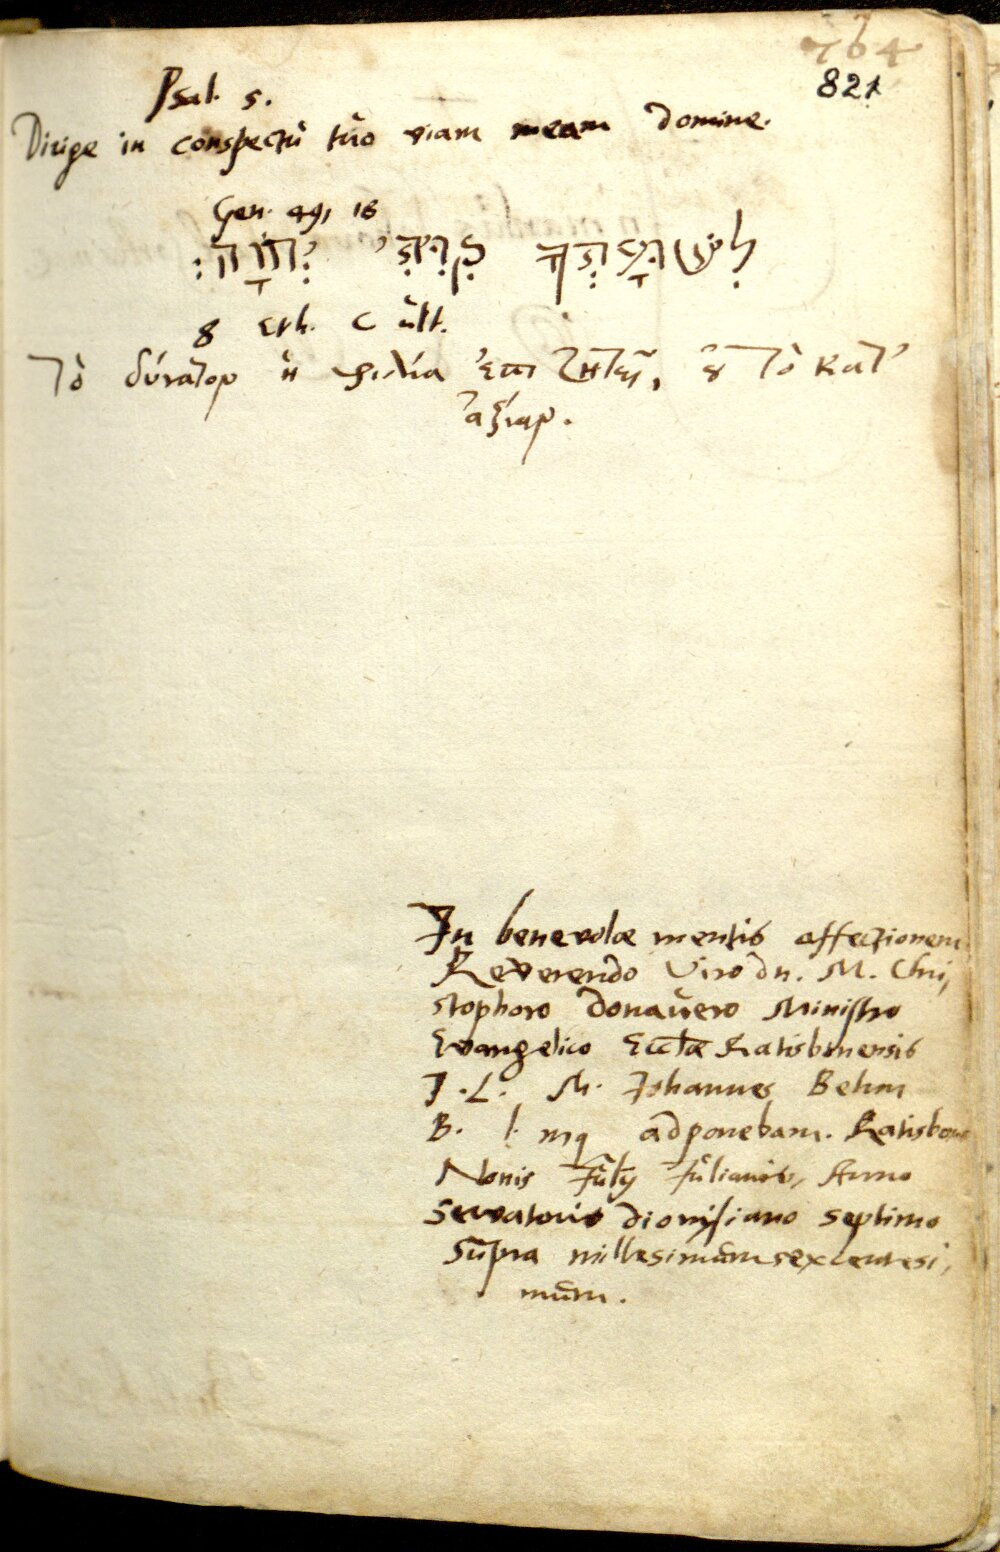 764
821
Psal. 5.
Dirige in conspectu tuo viam meam Domine.
Gen. 49, 18
לִישׁוּעָתְךָ קִוִּיתִי יְהוָה׃
8 Eth. C ult.
Τὸ δύνατον ἡ φιλία ἐπιζητεῖ, ȣ̓ Τὸ κατ'
ἀξίαν.
In benevolæ mentis affectionem
Reverendo Viro dn. M. Chri,
stophoro Donavero Ministro
Evangelico Eccłæ Ratisbonensis
J. L. M. Johannes Behm
B. l. mq adponebam. Ratisbonæ
Nonis July Julianis, Anno
Servatoris dionysiano septimo
supra millesimum sexcentesi,
mum.